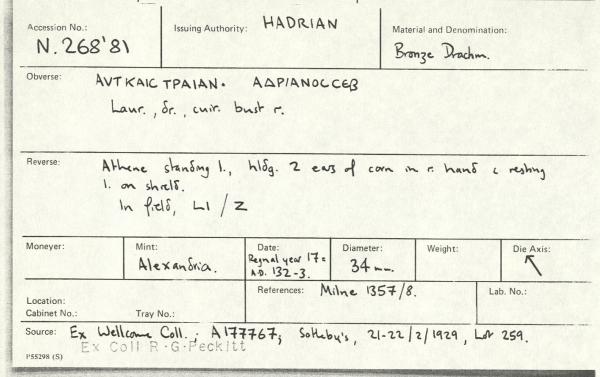 Accession No.:
N.268'81
Issuing Authority: HADRIAN
Material and Denomination:
Bronze Drachm.
Obverse: ΑΥΤΚΑΙC ΤΡΑΙΑΝ· ΑΔΡΙΑΝΟCCΕΒ
Laur., dr., cuir. bust r.
Reverse: Athene standing l., hldg. 2 ears of corn in r. hand & resting
l. on shield.
In field, LΙ / Ζ
Moneyer:
Mint:
Alexandria.
Date:
Regnal year 17 =
A.D. 132-3.
Diameter:
34 mm.
Weight:
Die Axis:
↖
Location:
Cabinet No.: Tray No.:
References: Milne 1357/8.
Lab. No.:
Source: Ex Wellcome Coll.; A177767; Sotheby's, 21-22/2/1929, Lot 259.
Ex Coll R·G·Peckitt
P55298 (S)